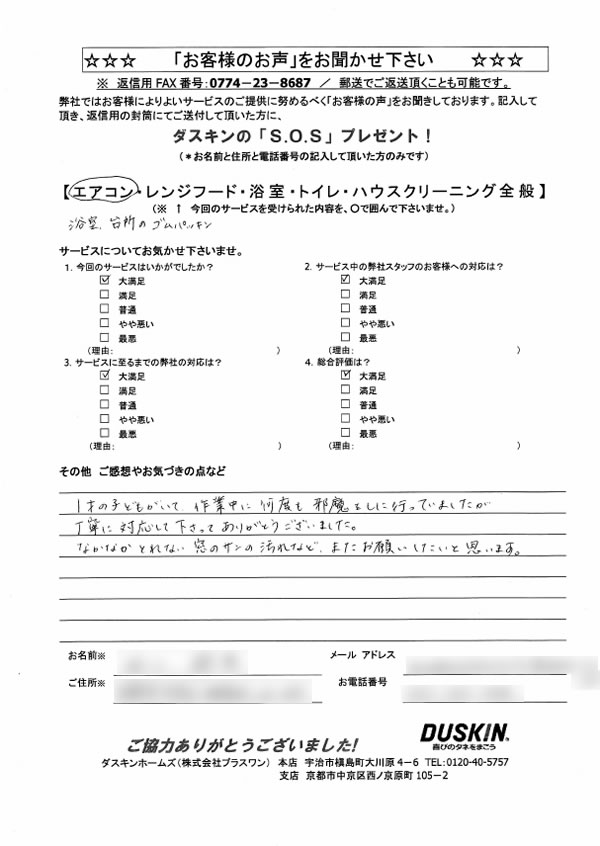 ☆☆☆ 「お客様のお声」をお聞かせ下さい ☆☆☆
※ 返信用FAX番号:0774-23-8687 / 郵送でご返送頂くことも可能です。
弊社ではお客様によりよいサービスのご提供に努めるべく「お客様の声」をお聞きしております。記入して
頂き、返信用の封筒にてご送付して頂いた方に、
ダスキンの「S.O.S」プレゼント!
(*お名前と住所と電話番号の記入して頂いた方のみです)
【エアコン・レンジフード・浴室・トイレ・ハウスクリーニング全般】
(※ ↑ 今回のサービスを受けられた内容を、○で囲んで下さいませ。)
浴室、台所のゴムパッキン
サービスについてお気かせ下さいませ。
1. 今回のサービスはいかがでしたか?
☑ 大満足
□ 満足
□ 普通
□ やや悪い
□ 最悪
(理由: )
2. サービス中の弊社スタッフのお客様への対応は?
☑ 大満足
□ 満足
□ 普通
□ やや悪い
□ 最悪
(理由: )
3. サービスに至るまでの弊社の対応は?
☑ 大満足
□ 満足
□ 普通
□ やや悪い
□ 最悪
(理由: )
4. 総合評価は?
☑ 大満足
□ 満足
□ 普通
□ やや悪い
□ 最悪
(理由: )
その他 ご感想やお気づきの点など
1才の子どもがいて、作業中に何度も邪魔をしに行っていましたが
丁寧に対応して下さってありがとうございました。
なかなかとれない窓のサンの汚れなど、またお願いしたいと思います。
お名前※
メール アドレス
ご住所※
お電話番号
ご協力ありがとうございました!
DUSKIN
喜びのタネをまこう
ダスキンホームズ(株式会社プラスワン) 本店 宇治市槇島町大川原4-6 TEL:0120-40-5757
支店 京都市中京区西ノ京原町105-2